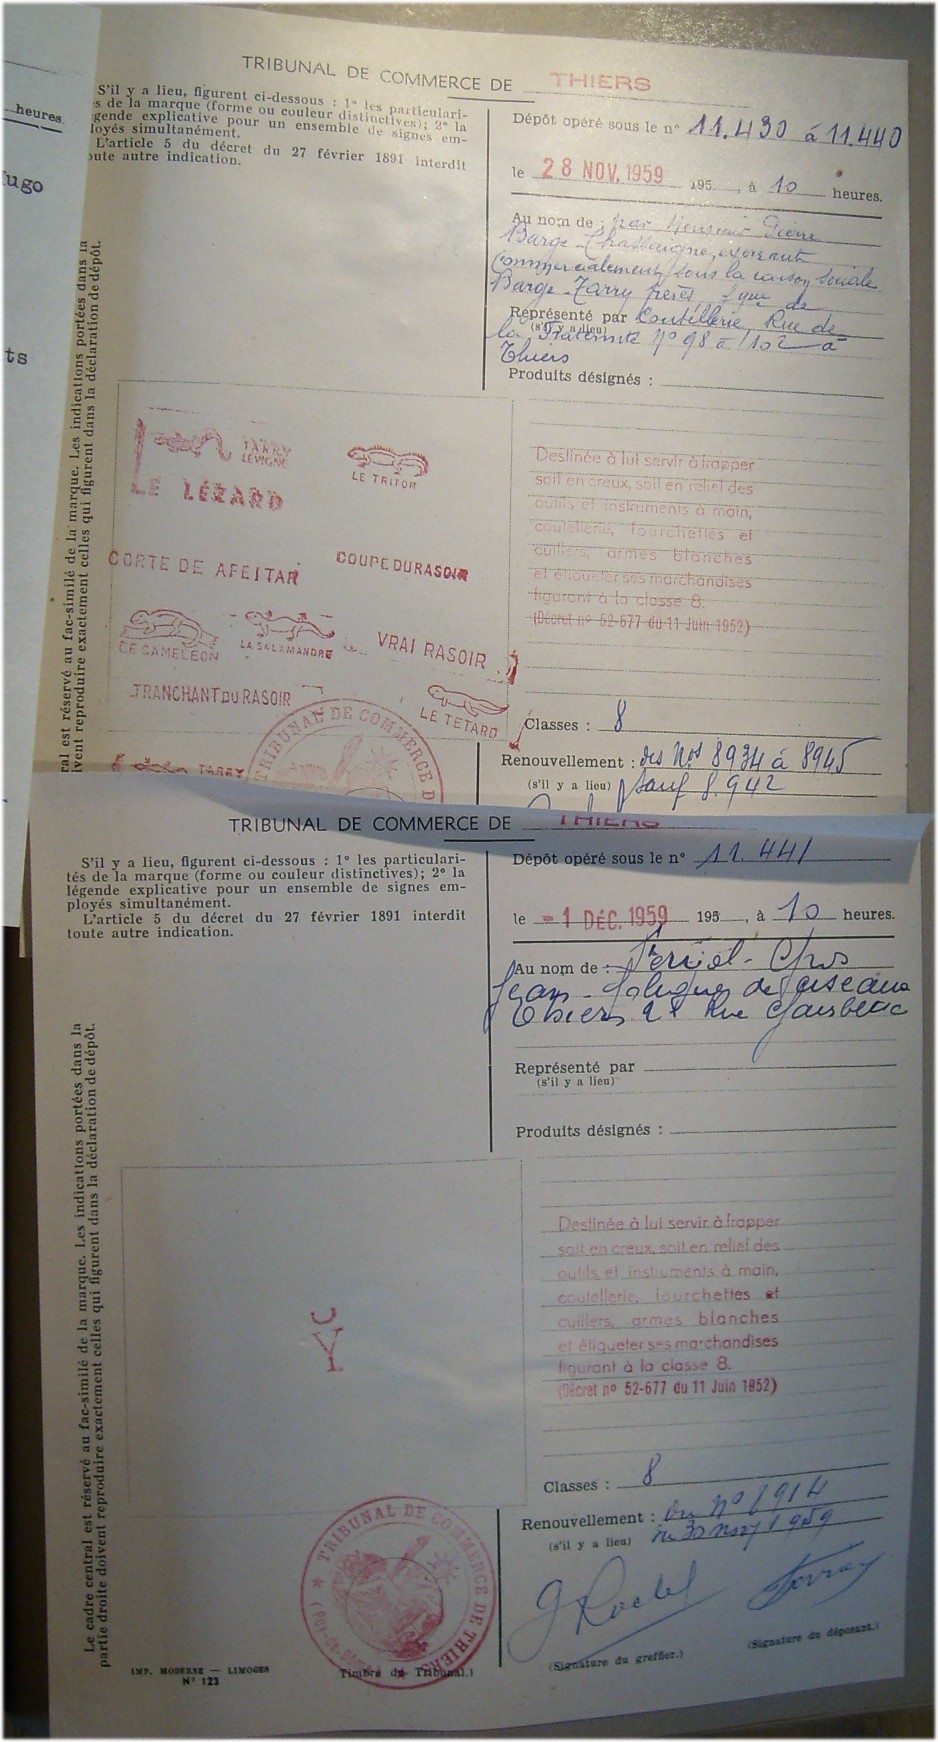 heures.
ugo
ts
TRIBUNAL DE COMMERCE DE THIERS
S'il y a lieu, figurent ci-dessous : 1º les particulari-
s de la marque (forme ou couleur distinctives); 2º la
gende explicative pour un ensemble de signes em-
loyés simultanément.
L'article 5 du décret du 27 février 1891 interdit
oute autre indication.
Dépôt opéré sous le nº 11.430 à 11.440
le 28 NOV. 1959 195 , à 10 heures.
Au nom de : par Monsieur Pierre
Barge-Chassaigne, exerçant
Commercialement sous la raison sociale
Barge-Tarry frères, fque de
Représenté par Coutellerie, Rue de
(s'il y a lieu)
la Fraternité Nº 98 à 102 à
Thiers
Produits désignés :
ral est réservé au fac-similé de la marque. Les indications portées dans la
ivent reproduire exactement celles qui figurent dans la déclaration de dépôt.
TARRY
LEVIGNE
LE LÉZARD
LE TRITON
CORTE DE AFEITAR
COUPE DU RASOIR
LE CAMELEON
LA SALAMANDRE
VRAI RASOIR
TRANCHANT DU RASOIR
LE TETARD
TARRY
TRIBUNAL DE COMMERCE D
Destinée à lui servir à frapper
soit en creux, soit en relief des
outils et instruments à main,
coutellerie, fourchettes et
cuillers, armes blanches
et étiqueter ses marchandises
figurant à la classe 8.
(Décret nº 52-677 du 11 Juin 1952)
Classes : 8
Renouvellement : des Nos 8934 à 8945
(s'il y a lieu) sauf 8.942
TRIBUNAL DE COMMERCE DE THIERS
S'il y a lieu, figurent ci-dessous : 1º les particulari-
tés de la marque (forme ou couleur distinctives); 2º la
légende explicative pour un ensemble de signes em-
ployés simultanément.
L'article 5 du décret du 27 février 1891 interdit
toute autre indication.
Dépôt opéré sous le nº 11.441
le -1 DÉC. 1959 195 , à 10 heures.
Au nom de :
Jean - de ciseaux
Thiers Rue
Représenté par
(s'il y a lieu)
Produits désignés :
Le cadre central est réservé au fac-similé de la marque. Les indications portées dans la
partie droite doivent reproduire exactement celles qui figurent dans la déclaration de dépôt.
Y
Destinée à lui servir à frapper
soit en creux, soit en relief des
outils et instruments à main,
coutellerie, fourchettes et
cuillers, armes blanches
et étiqueter ses marchandises
figurant à la classe 8.
(Décret nº 52-677 du 11 Juin 1952)
Classes : 8
Renouvellement : du Nº 8914
(s'il y a lieu) du 30 1959
TRIBUNAL DE COMMERCE DE THIERS
(Signature du greffier.)
(Signature du déposant.)
IMP. MODERNE — LIMOGES
Nº 123
Timbre du Tribunal.)